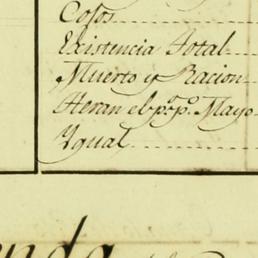 Cosos
Existencia total
Muerto y Racion
Heran el pº pº. Mayo
Ygual
enda